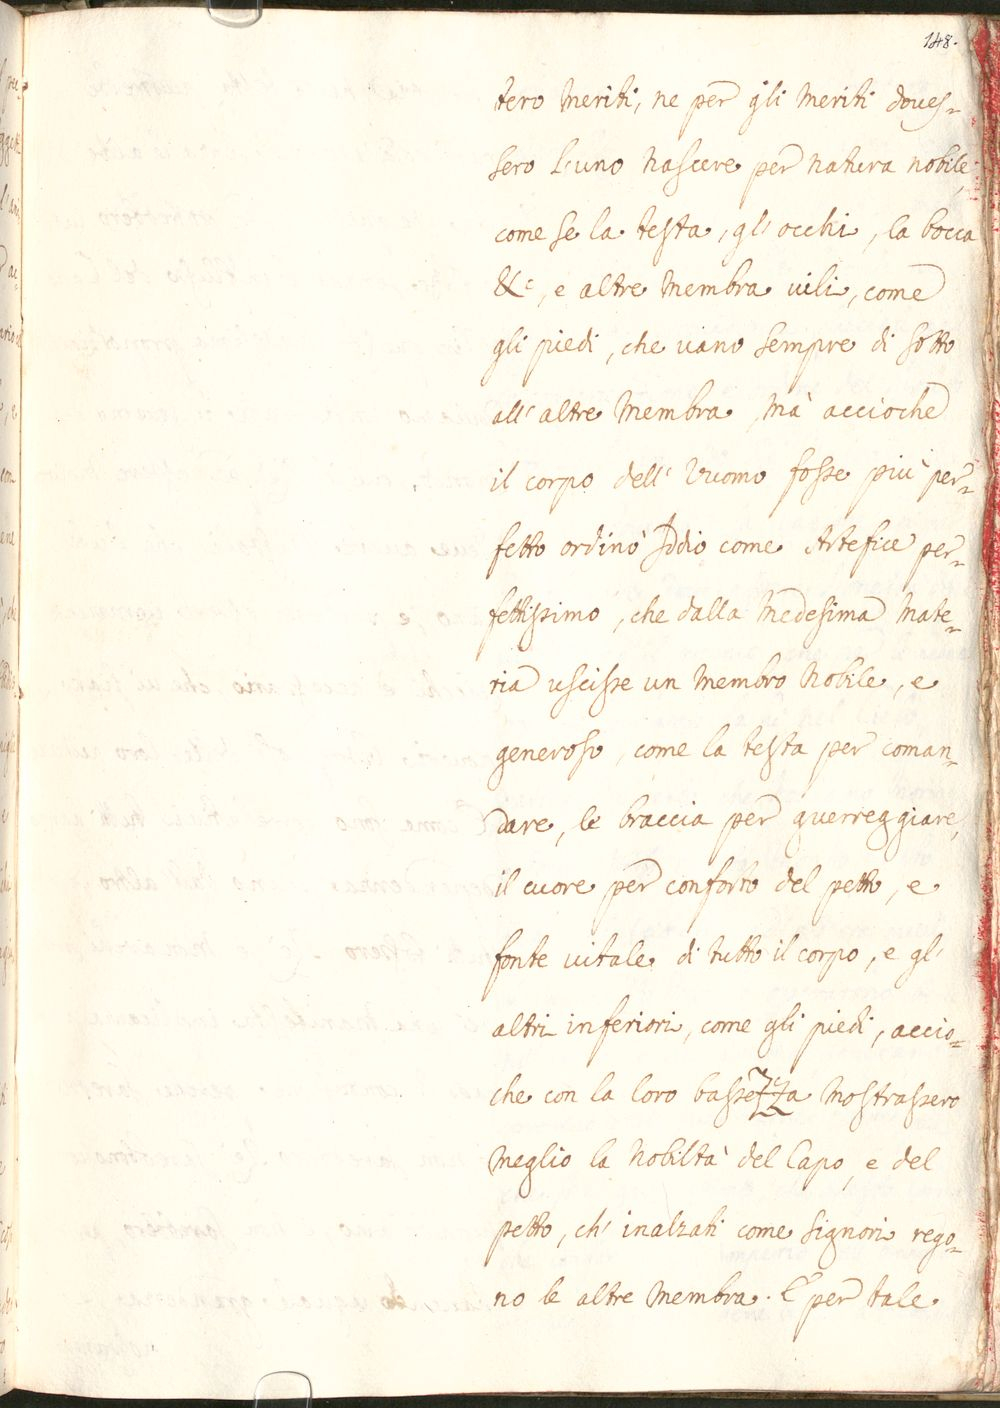 148.
tero meriti, ne per gli meriti doues-
sero l'uno nascere per natura nobile,
come se la testa, gl'occhi, la bocca
&c, e altre membra uili, come
gli piedi, che uano sempre di sotto
all'altre membra, mà accioche
il corpo dell'Vuomo fosse più per-
fetto ordinò Iddio come Artefice per-
fettissimo, che dalla medesima mate-
ria uscisse un membro nobile, e
generoso, come la testa per coman-
dare, le braccia per guerreggiare,
il cuore per conforto del petto, e
fonte uitale di tutto il corpo, e gl'
altri inferiori, come gli piedi, accio-
che con la loro bassezza mostrassero
meglio la nobiltà del Capo, e del
petto, ch'inalzati come signori rego-
no le altre membra. E per tale